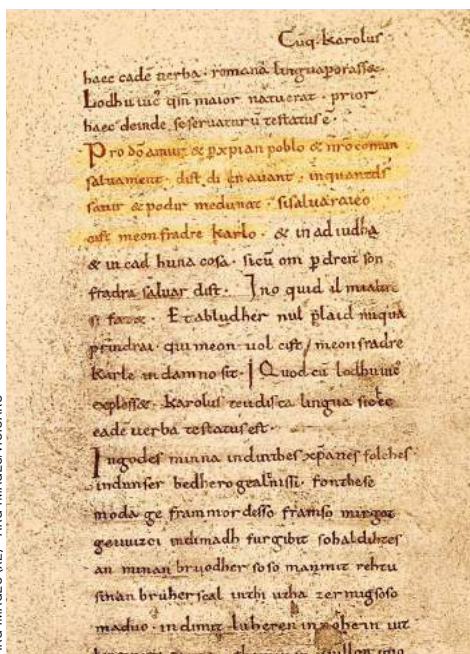 Cuq. karolus
haec eadē uerba. romana lingua porasset.
Lodhuuic' qm̄ maior natuerat. prior
haec deinde se seruaturū testatus ē.
Pro dō amur & p xp̄ian poblo & nr̄o comun
saluament. dist di en auant. inquantds
sauir & podir medunat. sisaluaraieo
cist meon fradre karlo. & in ad iudha
& in cad huna cosa. sicū om p dreit son
fradra saluar dist. Ino quid il mi altre
si faz&. Et abludher nul plaid nūquā
prindrai. qui meon uol cist / meonfradre
karle in damno sit. Quod cū lodhuuic'
explesset. karolus teudisca lingua sic ec
eade uerba testatus est.
Ingodes minna indinthes xp̄anes folches
indunser bedhero gealnissi. fonthese
moda ge frammordesso framso mirgot
geuuizci indimadh furgibit sohaldihtes
an minan bruodher soso manmit rehtu
sinan bruher scal inthi utha zermigsoso
maduo. indimit luheren in